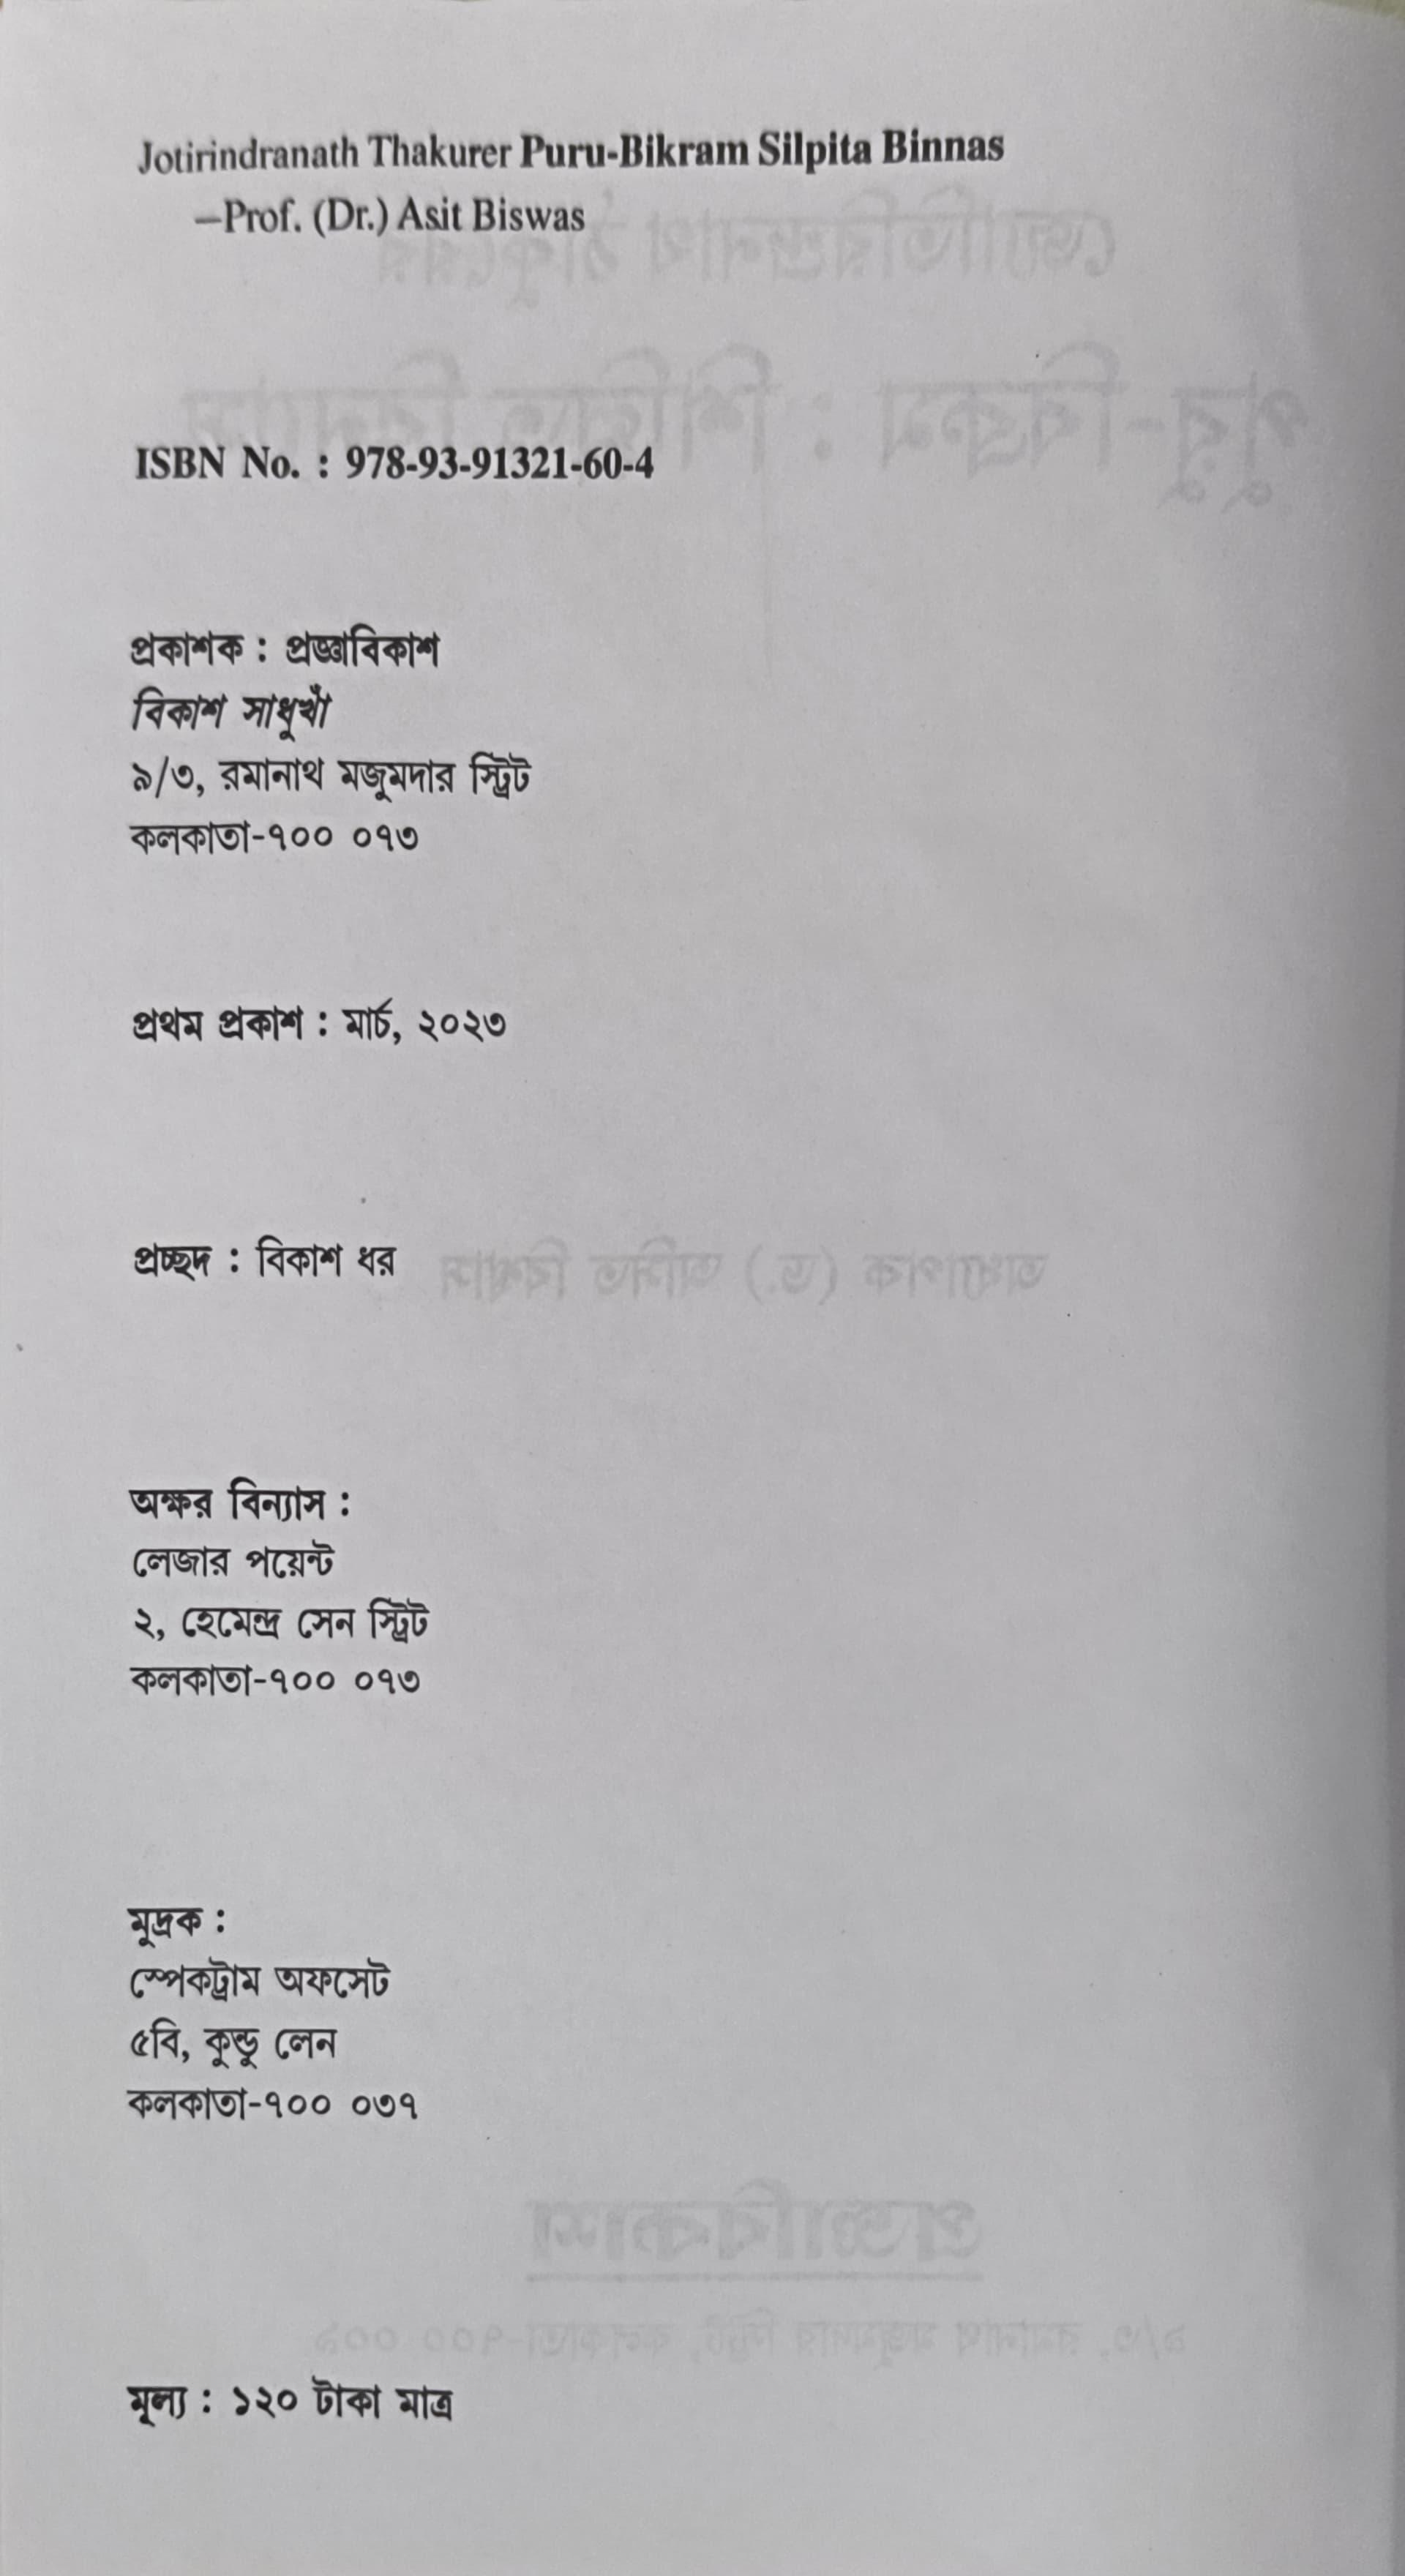 Jotirindranath Thakurer Puru-Bikram Silpita Binnas
—Prof. (Dr.) Asit Biswas
ISBN No. : 978-93-91321-60-4
প্রকাশক : প্রজ্ঞাবিকাশ
বিকাশ সাধুখাঁ
৯/৩, রমানাথ মজুমদার স্ট্রিট
কলকাতা-৭০০ ০৭৩
প্রথম প্রকাশ : মার্চ, ২০২৩
প্রচ্ছদ : বিকাশ ধর
অক্ষর বিন্যাস :
লেজার পয়েন্ট
২, হেমেন্দ্র সেন স্ট্রিট
কলকাতা-৭০০ ০৭৩
মুদ্রক :
স্পেকট্রাম অফসেট
৫বি, কুন্ডু লেন
কলকাতা-৭০০ ০৩৭
মূল্য : ১২০ টাকা মাত্র